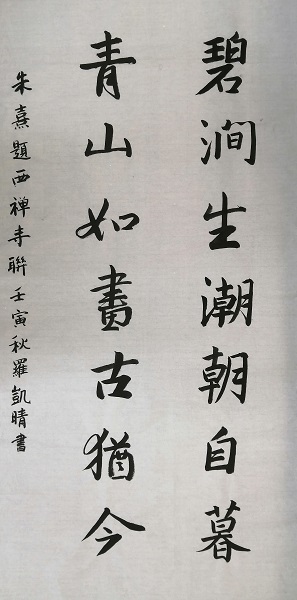 碧澗生潮朝自暮
青山如畫古猶今
朱熹題西禅寺聯壬寅秋羅凱晴書